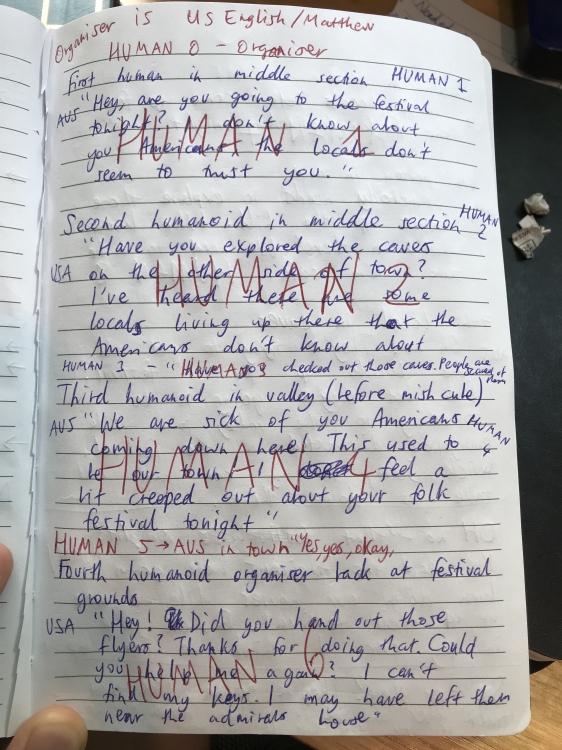 Organiser is US English/Matthew
HUMAN 0 - Organiser
First human in middle section HUMAN 1
AUS "Hey, are you going to the festival
tonight? I don't know about
you Americans the locals don't
seem to trust you."
HUMAN 1
Second humanoid in middle section HUMAN 2
"Have you explored the caves
USA on the other side of town?
I've heard there are some
locals living up there that the
Americans don't know about
HUMAN 2
HUMAN 3 - " checked out those caves. People are scared of them
Third humanoid in valley (before mish cule)
AUS "We are sick of you Americans HUMAN 4
coming down here! This used to
be our town I feel a
bit creeped out about your folk
festival tonight"
HUMAN 4
HUMAN 5 → AUS in town "Yes, yes, okay,
Fourth humanoid organiser back at festival
grounds
USA "Hey! Did you hand out those
flyers? Thanks for doing that. Could
you help me again? I can't
find my keys. I may have left them
near the admirals house"
HUMAN 6